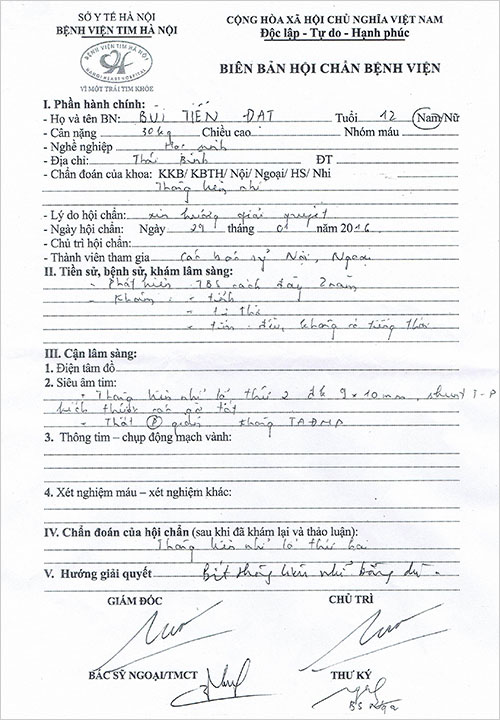 SỞ Y TẾ HÀ NỘI
BỆNH VIỆN TIM HÀ NỘI
CỘNG HÒA XÃ HỘI CHỦ NGHĨA VIỆT NAM
Độc lập - Tự do - Hạnh phúc
BỆNH VIỆN TIM HÀ NỘI
HANOI HEART HOSPITAL
VÌ MỘT TRÁI TIM KHỎE
BIÊN BẢN HỘI CHẨN BỆNH VIỆN
I. Phần hành chính:
- Họ và tên BN: BÙI TIẾN ĐẠT Tuổi 12 Nam/Nữ
- Cân nặng 30kg Chiều cao Nhóm máu
- Nghề nghiệp Học sinh
- Địa chỉ: Thái Bình ĐT
- Chẩn đoán của khoa: KKB/ KBTH/ Nội/ Ngoại/ HS/ Nhi
Thông liên nhĩ
- Lý do hội chẩn: xin hướng giải quyết
- Ngày hội chẩn: Ngày 29 tháng năm 2016
- Chủ trì hội chẩn:
- Thành viên tham gia Các bác sỹ Nội, Ngoại
II. Tiền sử, bệnh sử, khám lâm sàng:
- Phát hiện TBS cách đây 2 năm
- Khám: - tỉnh
- thở
- tim đều, không có tiếng thổi
III. Cận lâm sàng:
1. Điện tâm đồ
2. Siêu âm tim:
- Thông liên nhĩ lỗ thứ 2 đk 9x10mm, shunt T-P
kích thước các gờ tốt
- Thất (P) giãn không TAĐMP
3. Thông tim – chụp động mạch vành:
4. Xét nghiệm máu – xét nghiệm khác:
IV. Chẩn đoán của hội chẩn (sau khi đã khám lại và thảo luận):
Thông liên nhĩ lỗ thứ hai
V. Hướng giải quyết Bít thông liên nhĩ bằng dù.
GIÁM ĐỐC CHỦ TRÌ
BÁC SỸ NGOẠI/TMCT THƯ KÝ
BS Nga